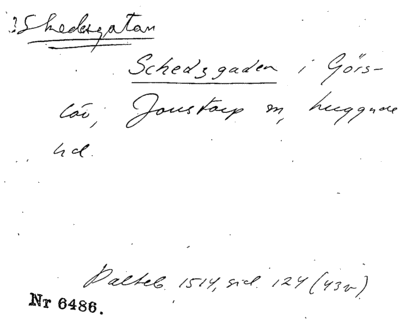 Skedesgatan
Schedsgaden i Görs-
löv, Jonstorp sn, Luggude
hd.
Palteb. 1514, sid. 124 (43v).
Nr 6486.